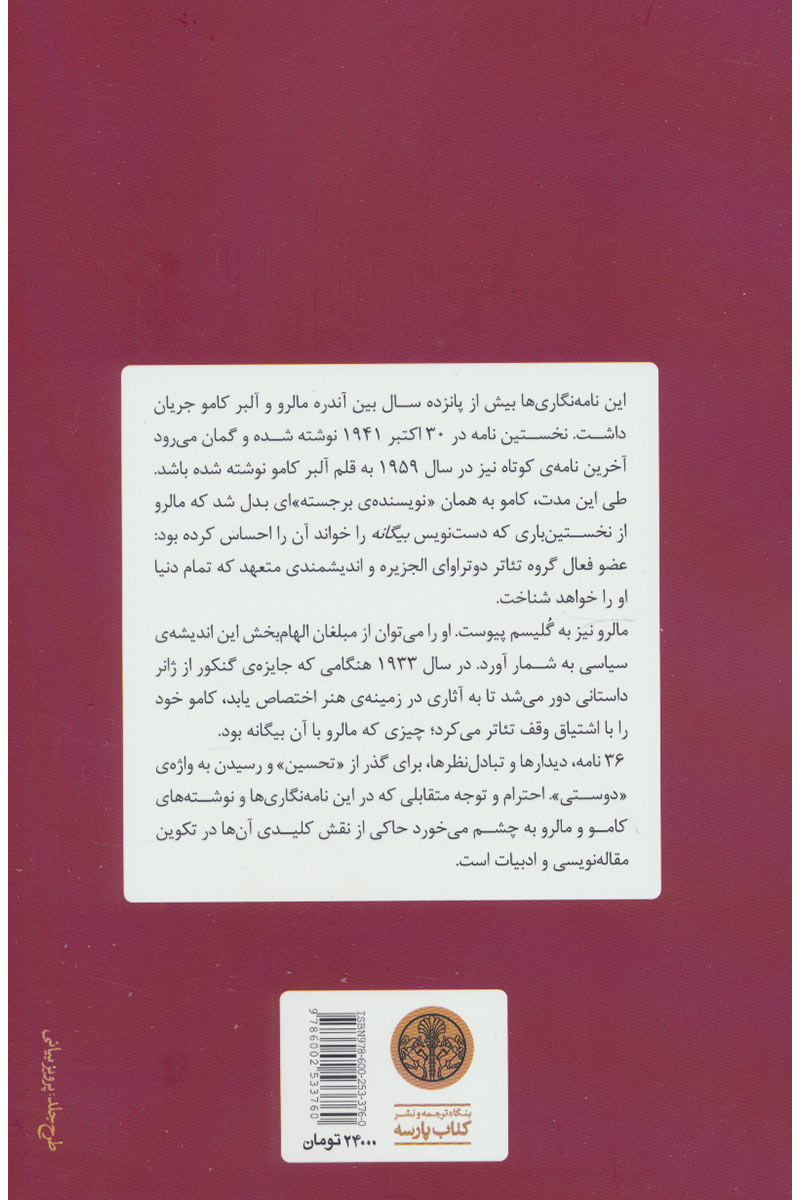 این نامه‌نگاری‌ها بیش از پانزده سال بین آندره مالرو و آلبر کامو جریان
داشت. نخستین نامه در ۳۰ اکتبر ۱۹۴۱ نوشته شده و گمان می‌رود
آخرین نامه‌ی کوتاه نیز در سال ۱۹۵۹ به قلم آلبر کامو نوشته شده باشد.
طی این مدت، کامو به همان «نویسنده‌ی برجسته»ای بدل شد که مالرو
از نخستین‌باری که دست‌نویس بیگانه را خواند آن را احساس کرده بود:
عضو فعال گروه تئاتر دوتراوای الجزیره و اندیشمندی متعهد که تمام دنیا
او را خواهد شناخت.
مالرو نیز به گُلیسم پیوست. او را می‌توان از مبلغان الهام‌بخش این اندیشه‌ی
سیاسی به شمار آورد. در سال ۱۹۳۳ هنگامی که جایزه‌ی گنکور از ژانر
داستانی دور می‌شد تا به آثاری در زمینه‌ی هنر اختصاص یابد، کامو خود
را با اشتیاق وقف تئاتر می‌کرد؛ چیزی که مالرو با آن بیگانه بود.
۳۶ نامه، دیدارها و تبادل‌نظرها، برای گذر از «تحسین» و رسیدن به واژه‌ی
«دوستی». احترام و توجه متقابلی که در این نامه‌نگاری‌ها و نوشته‌های
کامو و مالرو به چشم می‌خورد حاکی از نقش کلیدی آن‌ها در تکوین
مقاله‌نویسی و ادبیات است.
طرح جلد: پرویز بیانی
ISBN978-600-253-376-0
9786002533760
بنگاه ترجمه و نشر
کتاب پارسه
۲۴۰۰۰ تومان